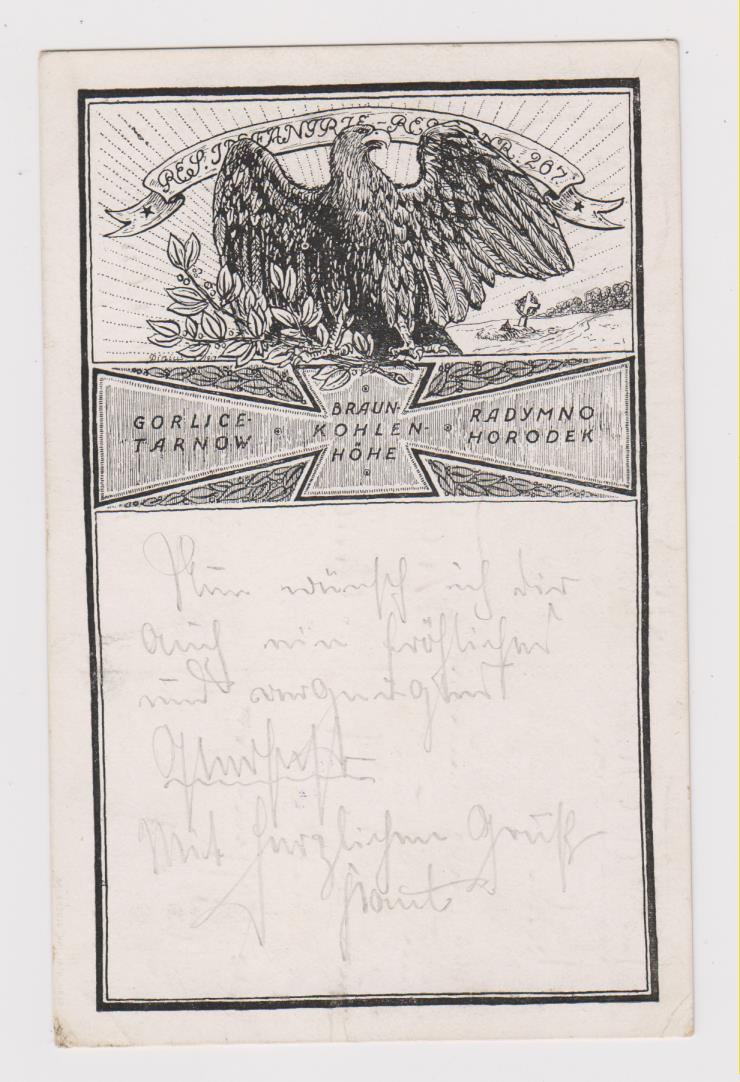 RES. INFANTRIE-REG. NR. 267
GORLICE-
TARNOW
BRAUN-
KOHLEN-
HÖHE
RADYMNO
HORODEK
Nun wünsch ich dir
auch ein fröhliches
und vergnügtes
Osterfest
Mit herzlichem Gruß